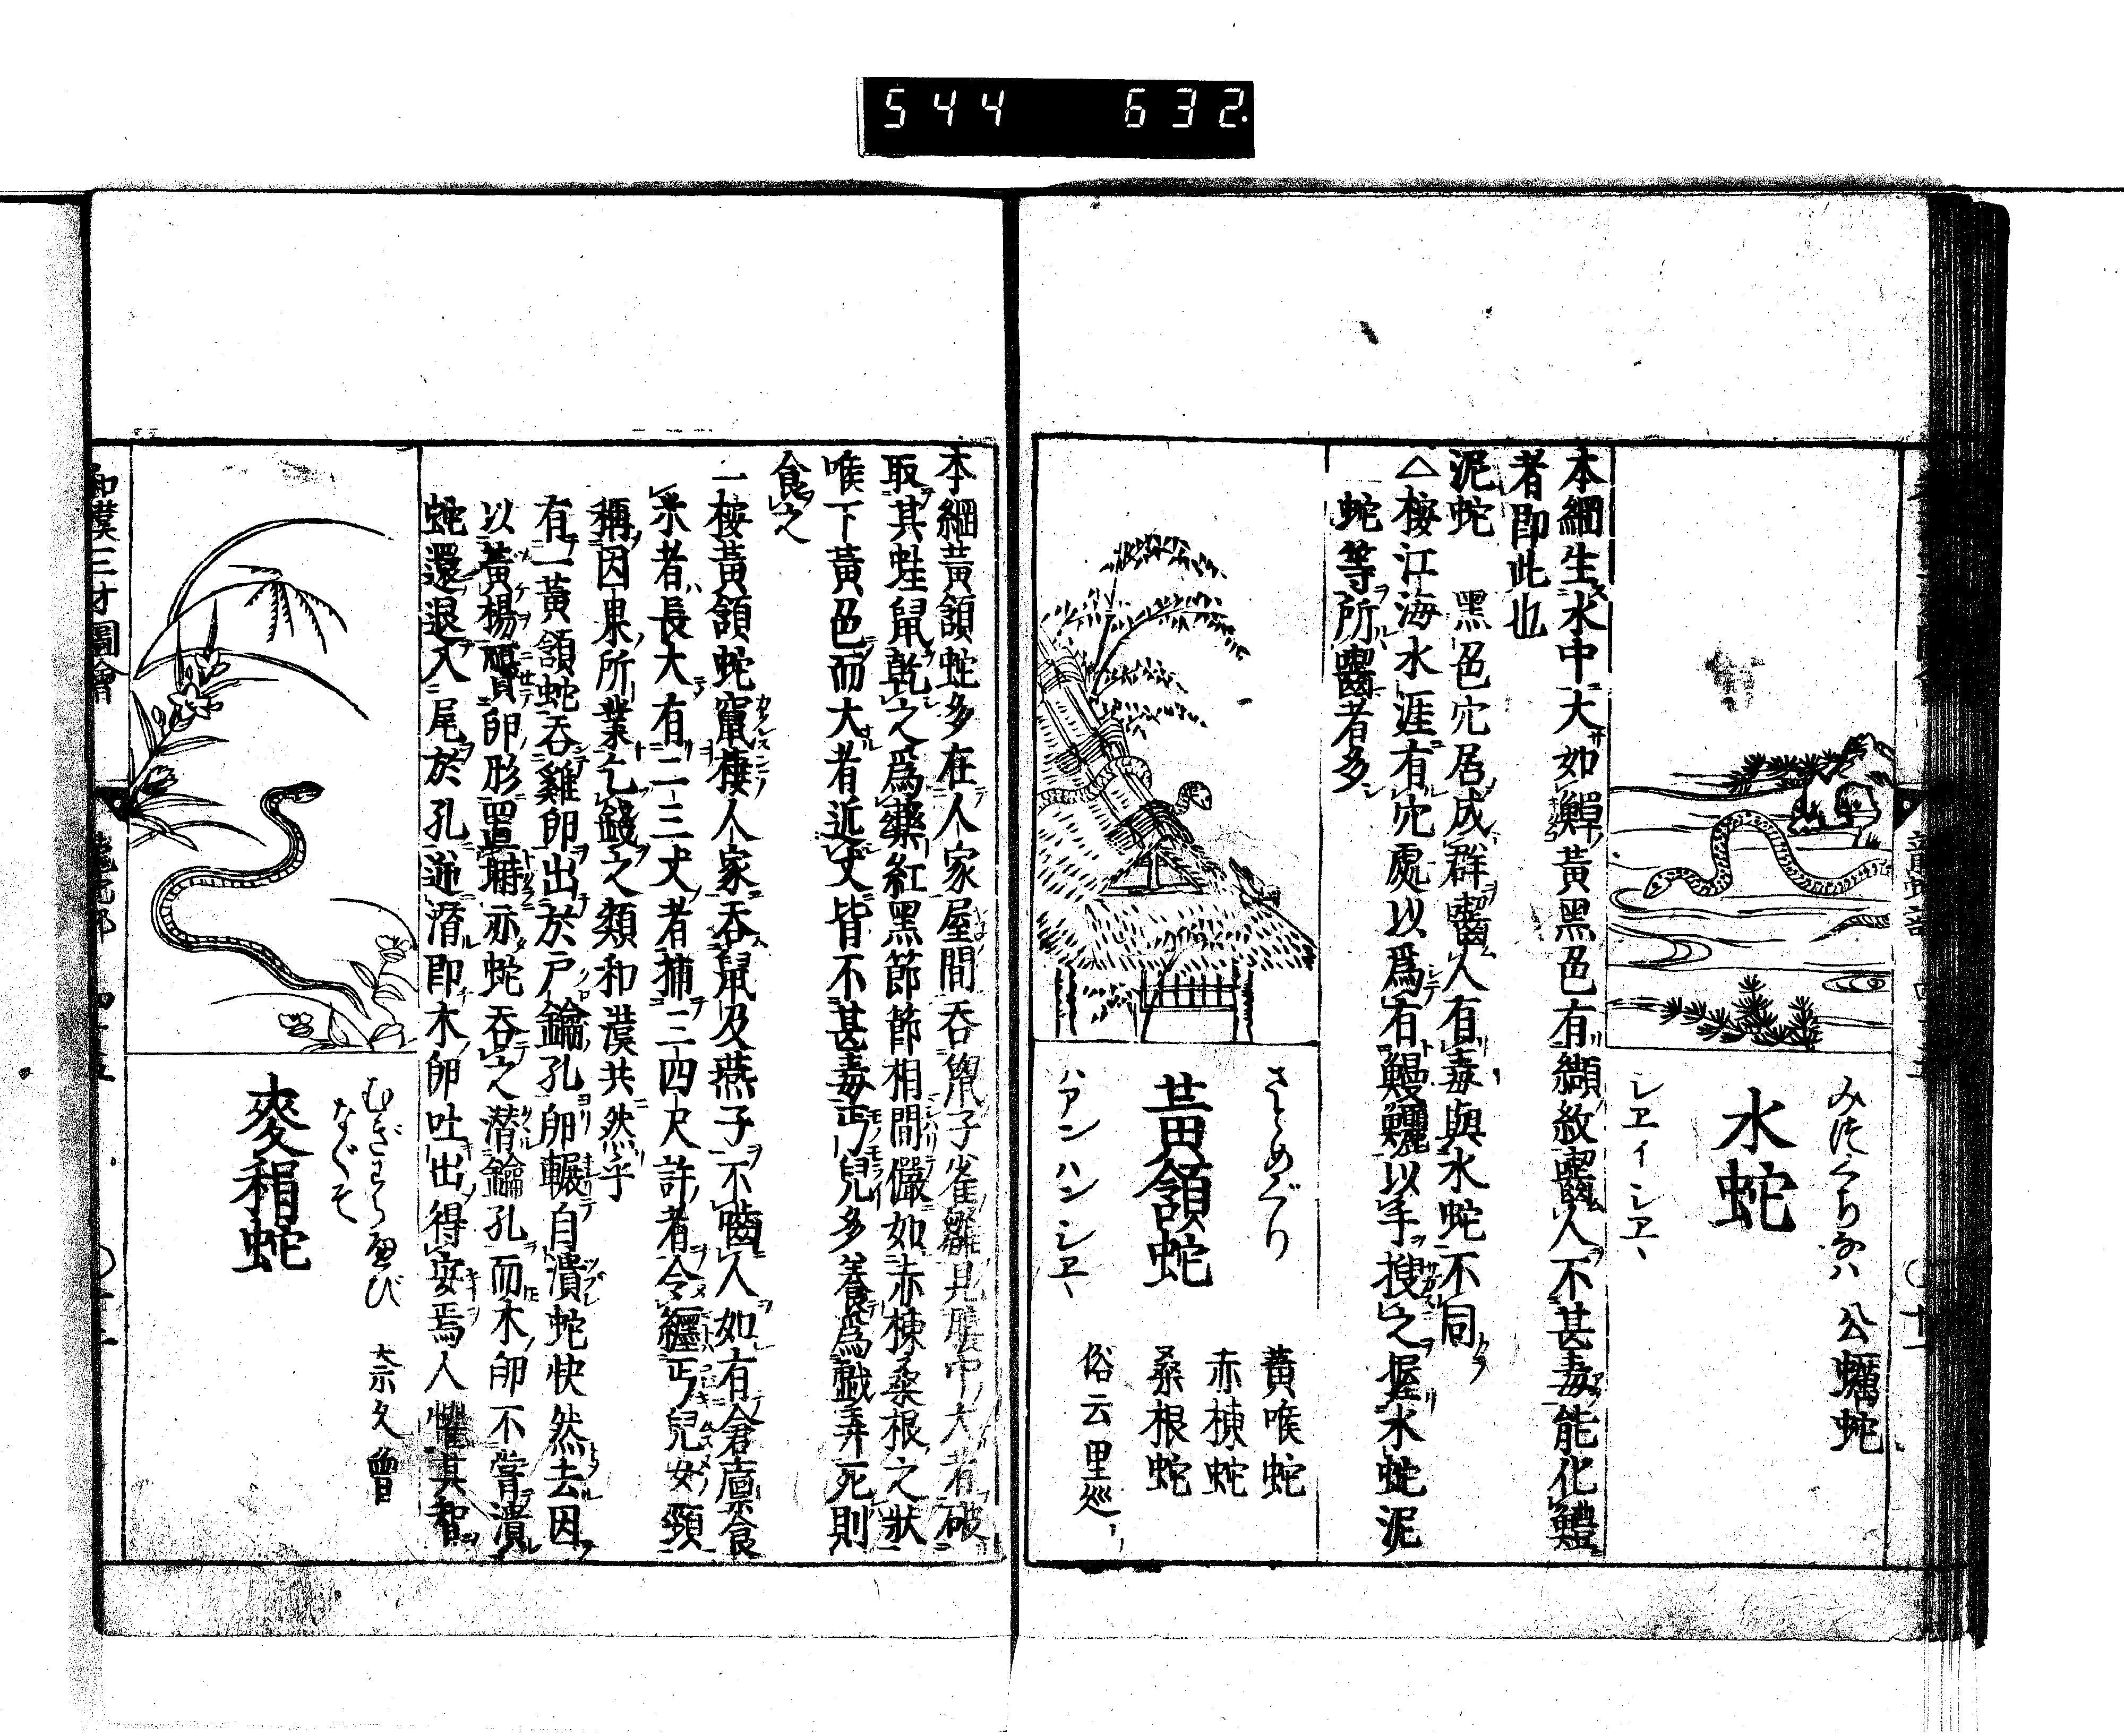 544 632.
みつくちなは 公蠣蛇
水蛇
シヱイシヱヽ
本綱生水中大如鱓黃黑色有纈紋嚙人不甚毒能化鱧
者卽此也
泥蛇 黑色穴居成群嚙人有毒與水蛇不同
△按江海水涯有穴處以爲有鰻鱺以手搜之握水蛇泥
蛇等所嚙者多
さとめぐり
黃頷蛇
ハアンハンシヱヽ
黃喉蛇
赤楝蛇
桑根蛇
俗云里巡
本綱黃頷蛇多在人家屋間吞鼠子雀雛見腹中大者破
取其蛙鼠乾之爲藥紅黑節節相間儼如赤楝桑根之狀
喉下黃色而大者近丈皆不甚毒丐兒多養爲戲弄死則
食之
一按黃頷蛇竄棲人家吞鼠及燕子不嚙人如有倉廩食
米者長大有二三丈者捕三四尺許者令纒丐兒女頸
稱因果所業乞錢之類和漢共然乎
有一黃頷蛇吞雞卵出於戶鑰孔卵輾自潰蛇快然去因
以黃楊贋卵形置塒亦蛇吞之潜鑰孔而木卵不嘗潰
蛇還退入尾於孔逆潛卽木卵吐出得安焉人懼其智
むぎわらへび
なぐそ
麥稍蛇
奈久曾
和漢三才圖會